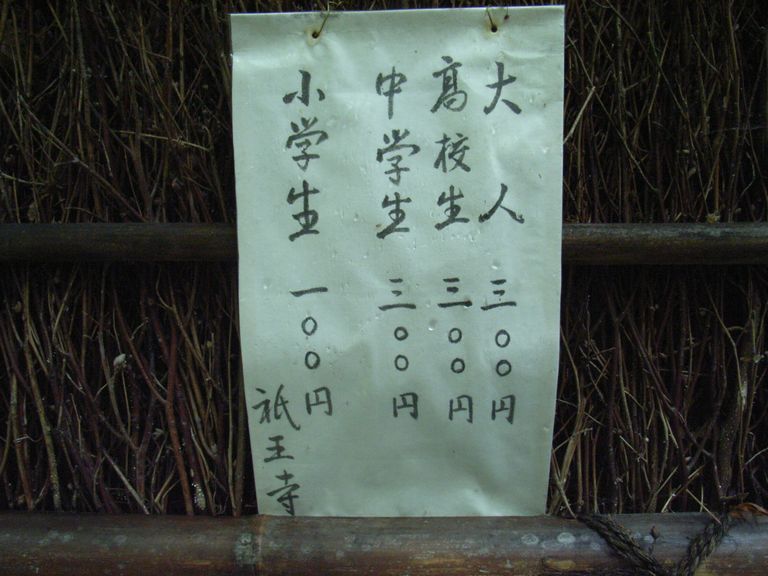 大人 三〇〇円
高校生 三〇〇円
中学生 三〇〇円
小学生 一〇〇円
祇王寺